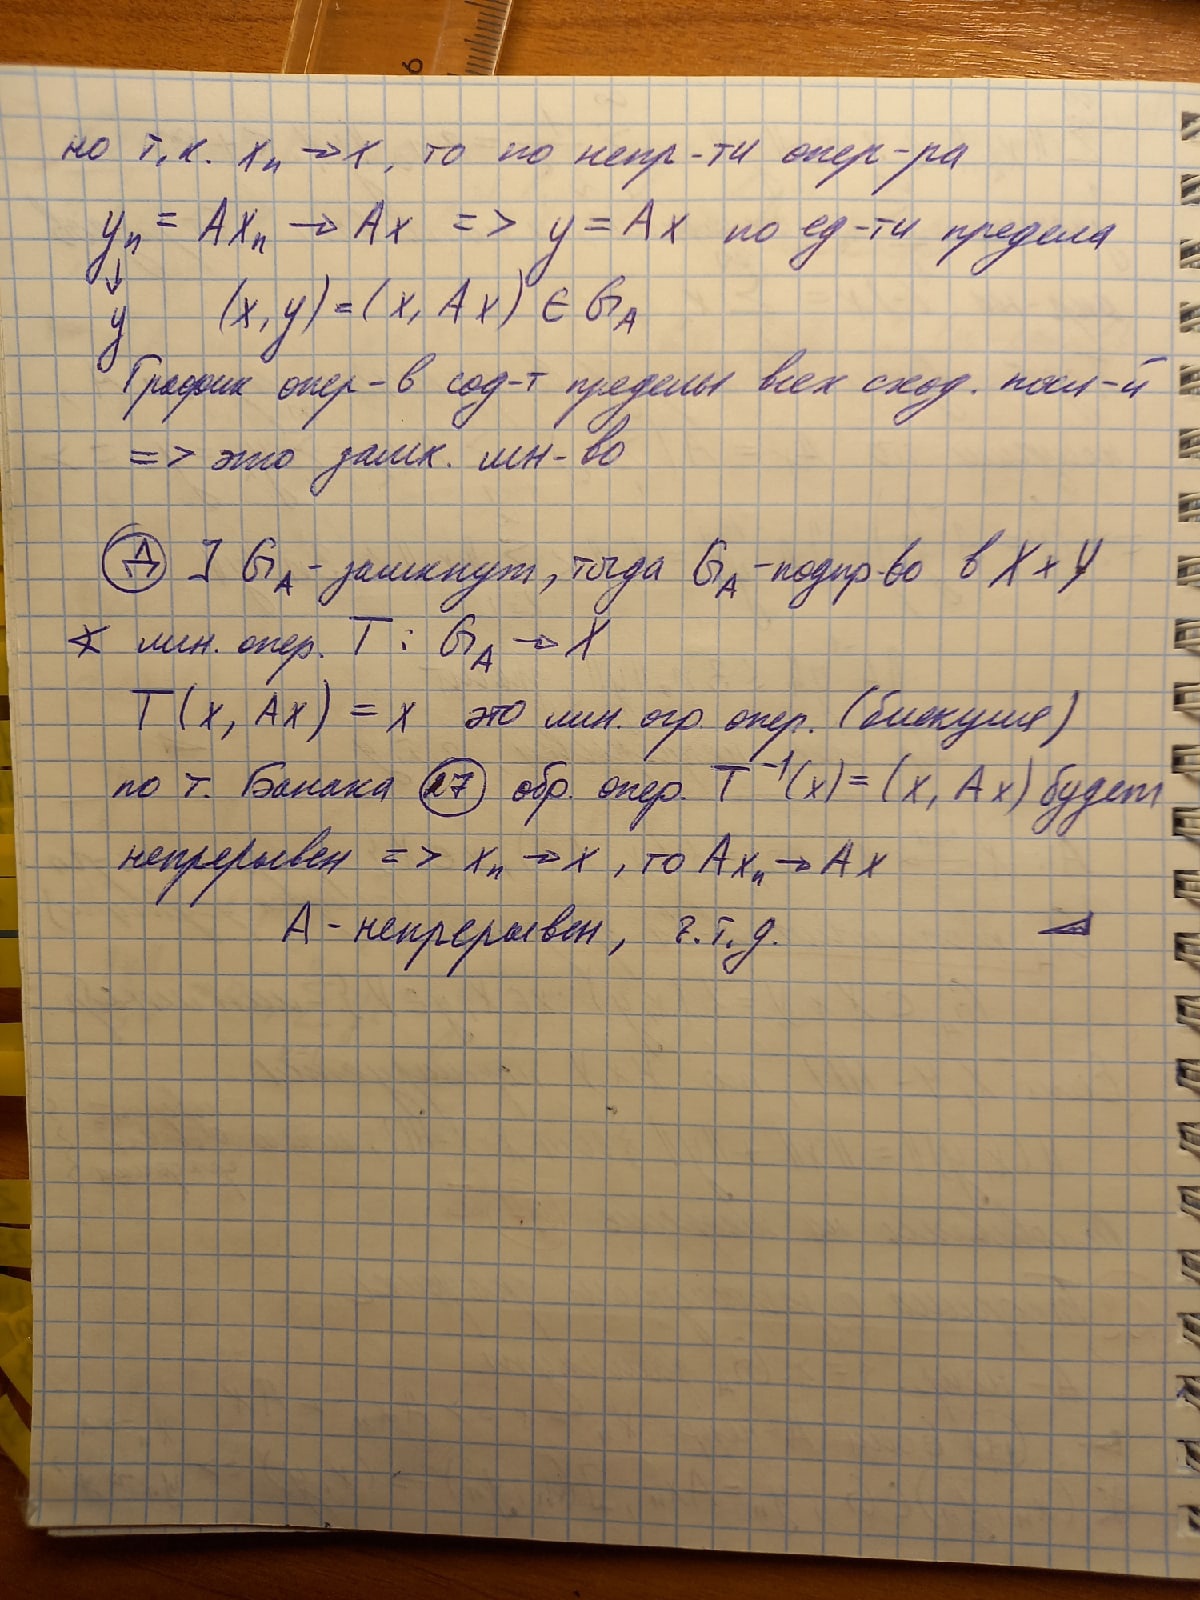 но т.к. xₙ → x, то по непр-ти опер-ра
yₙ = Axₙ → Ax => y = Ax по ед-ти предела
↓
y (x, y) = (x, Ax) ∈ G_A
График опер-в сод-т пределы всех сход. посл-й
=> это замк. мн-во
Д ] G_A - замкнут, тогда G_A - подпр-во в X × Y
∢ лин. опер. T : G_A → X
T(x, Ax) = x это лин. огр. опер. (биекция)
по т. Банаха 27 обр. опер. T⁻¹(x) = (x, Ax) будет
непрерывен => xₙ → x, то Axₙ → Ax
A - непрерывен, ч.т.д.
6